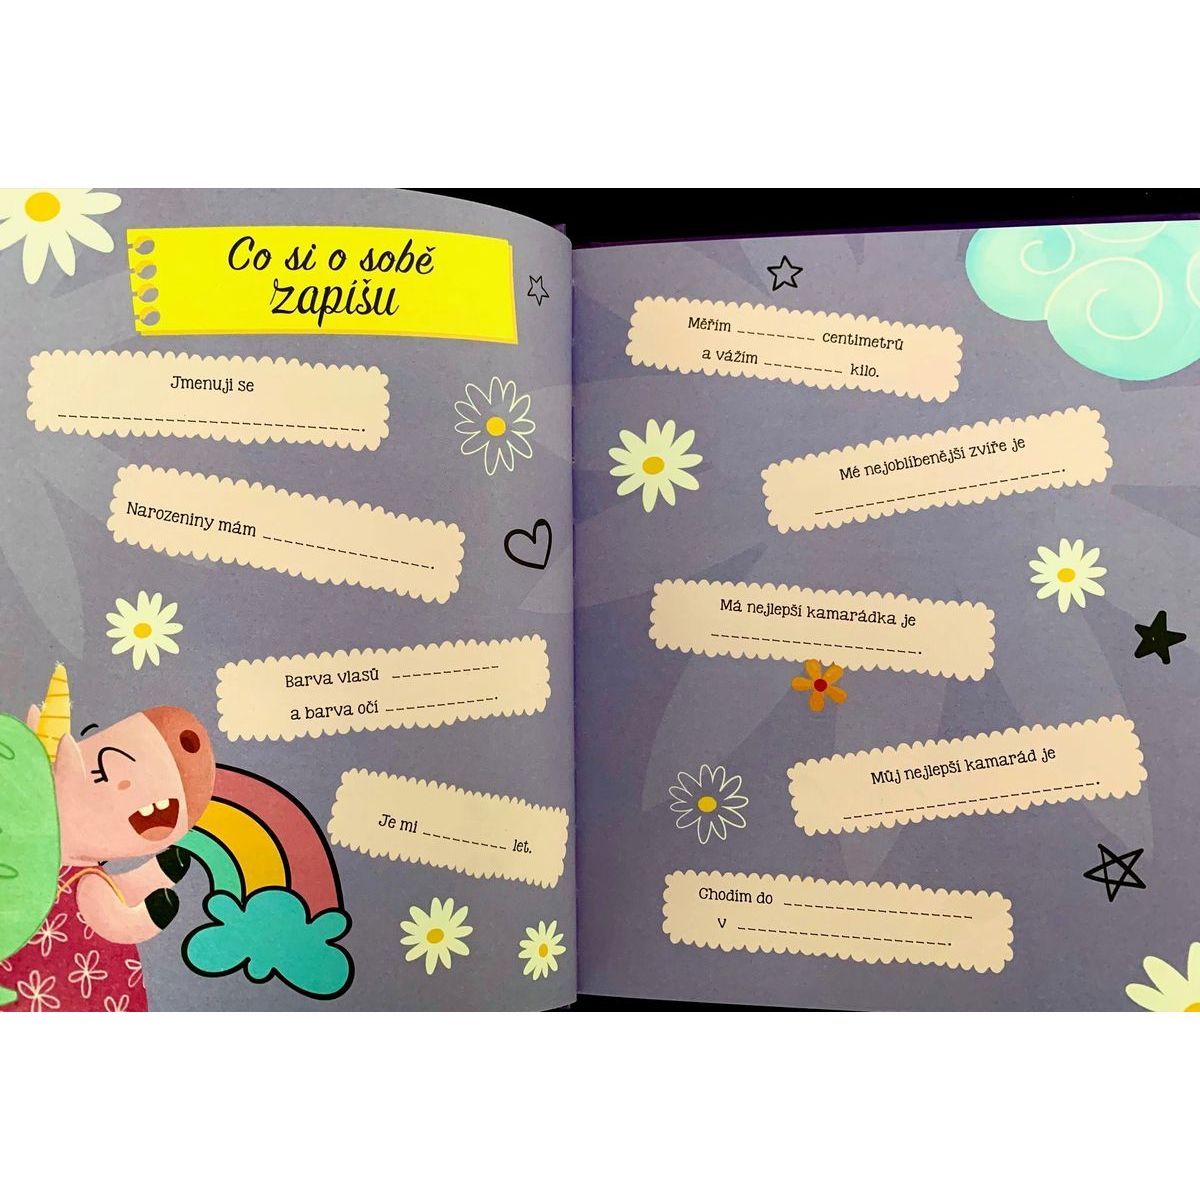 Co si o sobě
zapíšu
Jmenuji se
____________________.
Narozeniny mám ____________.
Barva vlasů ________
a barva očí ________.
Je mi ______ let.
Měřím ______ centimetrů
a vážím ______ kilo.
Mé nejoblíbenější zvíře je
__________________.
Má nejlepší kamarádka je
_______________.
Můj nejlepší kamarád je
__________________.
Chodím do _____________
v _______________.